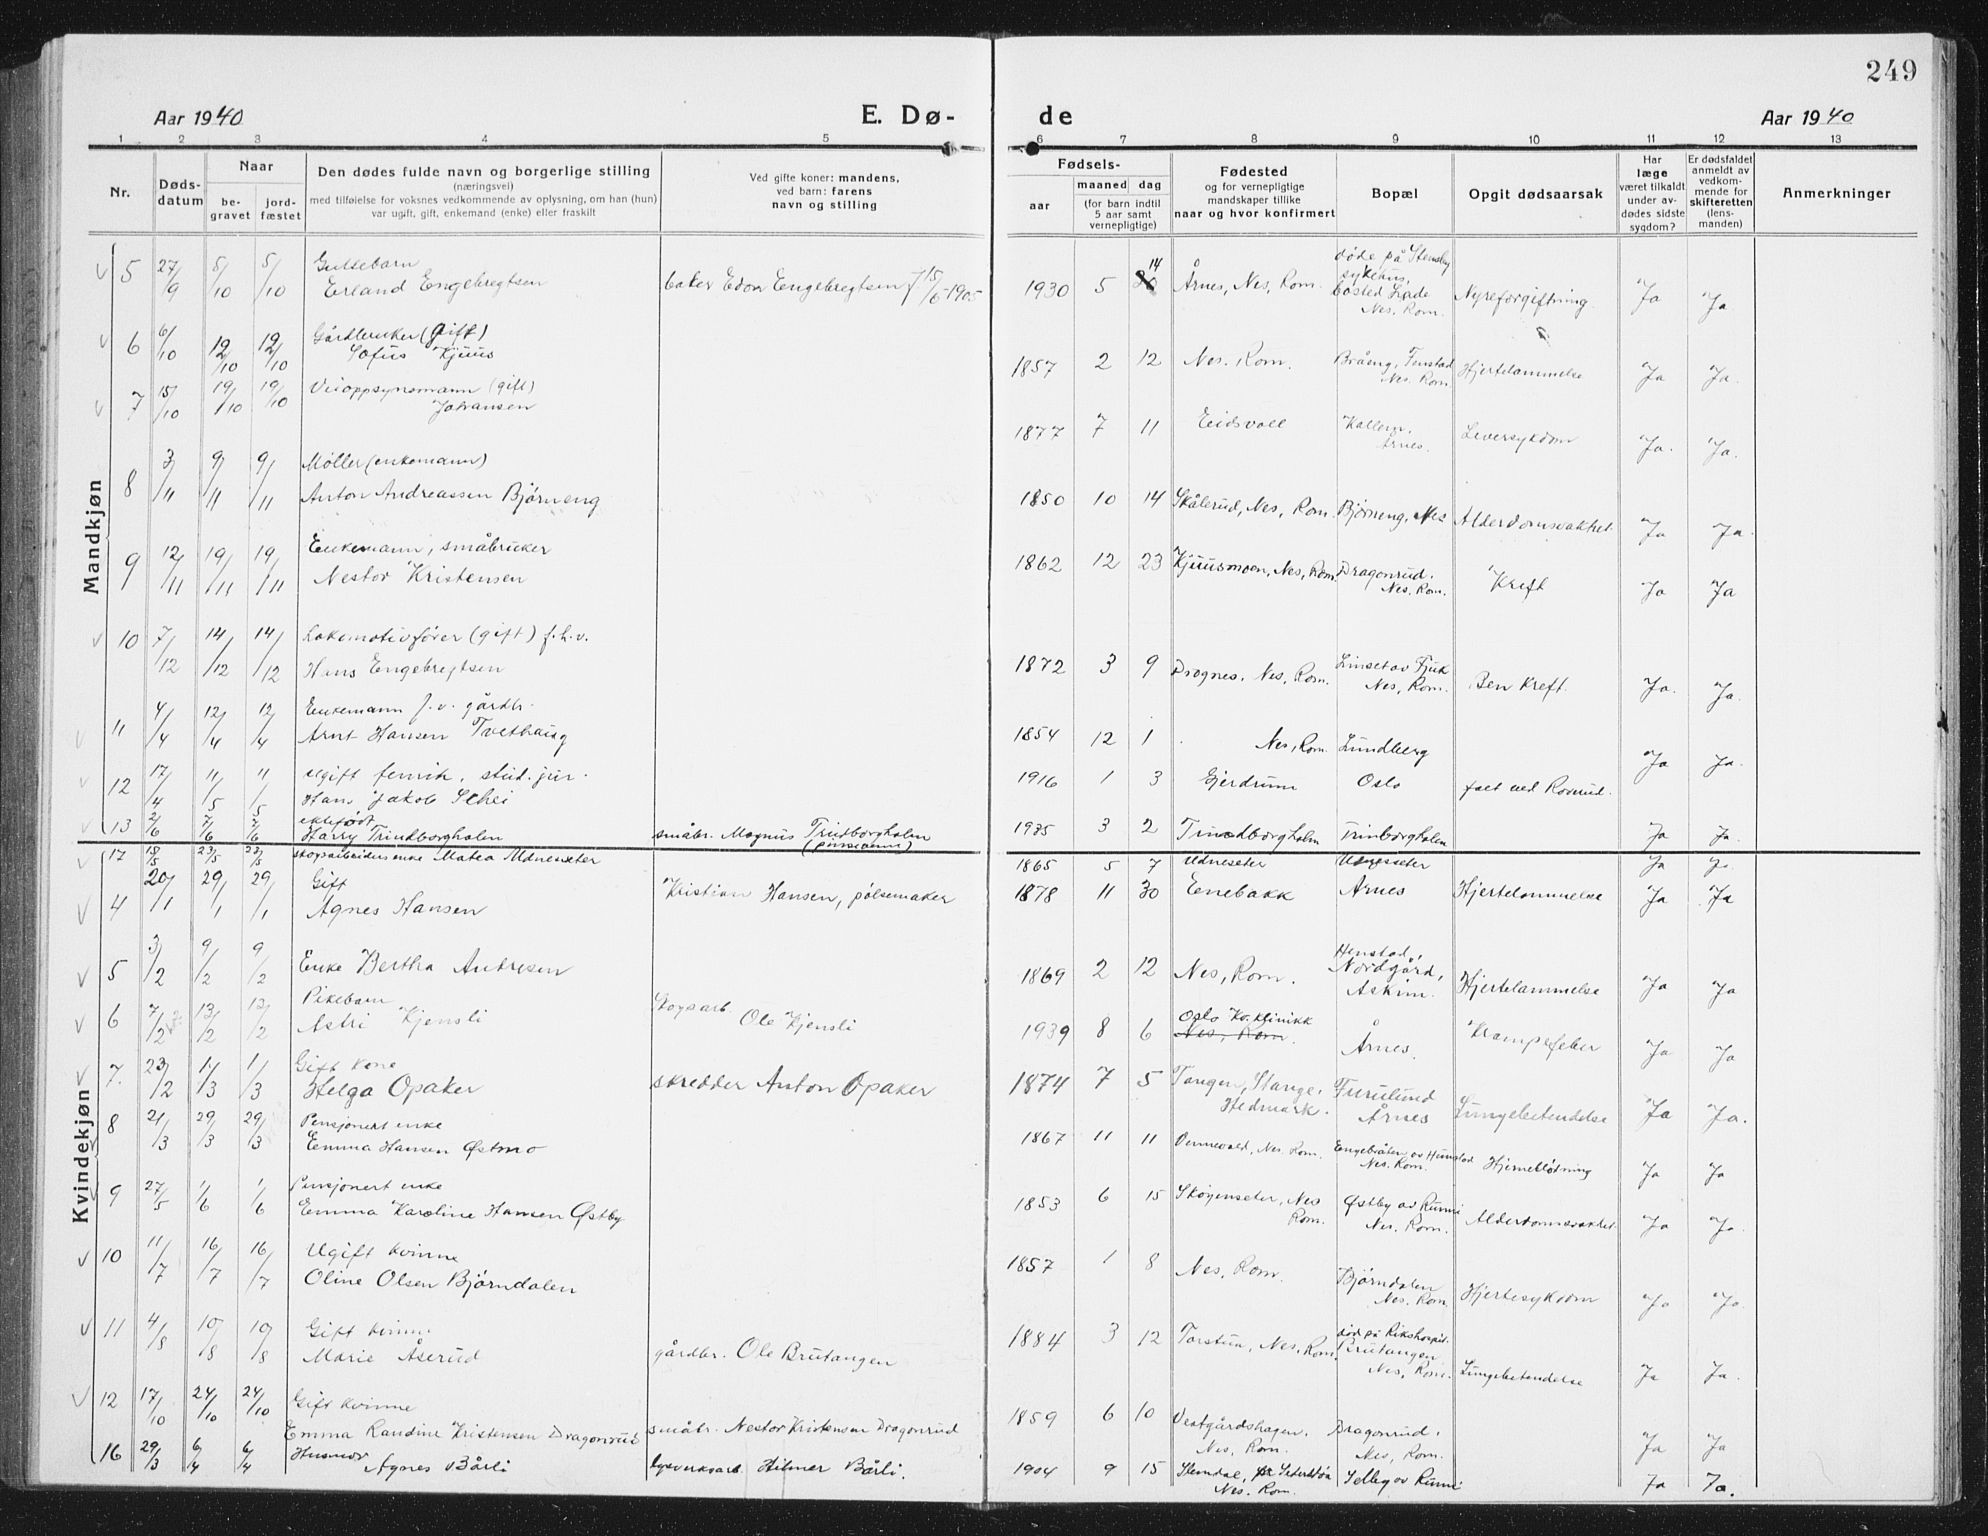 249
Aar 1940 E. Dø- de Aar 1940
1 2 3 4 5 6 7 8 9 10 11 12 13
Nr.
Døds-
datum
Naar
be-
gravet
jord-
fæstet
Den dødes fulde navn og borgerlige stilling
(næringsvei)
med tilføielse for voksnes vedkommende av oplysning, om han (hun)
var ugift, gift, enkemand (enke) eller fraskilt
Ved gifte koner: mandens,
ved barn: farens
navn og stilling
Fødsels-
aar
maaned dag
(for barn indtil
5 aar samt
vernepligtige)
Fødested
og for vernepligtige
mandskaper tillike
naar og hvor konfirmert
Bopæl
Opgit dødsaarsak
Har
læge
været tilkaldt
under av-
dødes sidste
sygdom?
Er dødsfaldet
anmeldt av
vedkom-
mende for
skifteretten
(lens-
manden)
Anmerkninger
Mandkjøn
5 27/9 5/10 5/10 Guttebarn
Erland Engebregtsen baker Edon Engebregtsen f 15/6-1905 1930 5 14 Årnes, Nes, Rom. døde på Stensby
sykehus,
bosted Liade
Nes, Rom. Nyreforgiftning Ja Ja
6 6/10 12/10 12/10 Gårdbruker (gift)
Sofus Kjuus 1857 2 12 Nes, Rom. Bråeng, Fenstad
Nes, Rom Hjertelammelse Ja Ja.
7 15/10 19/10 19/10 Veioppsynsmann (gift)
Johansen 1877 7 11 Eidsvoll Kallem,
Årnes. Leversykdom Ja. Ja.
8 3/11 9/11 9/11 Møller (enkemann)
Anton Andreassen Bjørneng 1850 10 14 Skålerud, Nes, Rom. Bjørneng, Nes Alderdomsvakhet Ja Ja.
9 12/11 19/11 19/11 Enkemann, småbruker
Nestor Kristensen 1862 12 23 Kjuusmoen, Nes, Rom. Dragonrud.
Nes, Rom. Kreft Ja Ja
10 7/12 14/12 14/12 Lokomotivfører (gift) f.h.v.
Hans Engebregtsen 1872 3 9 Drognes, Nes, Rom. Linset av Fjuk
Nes, Rom. Ben kreft. Ja. Ja.
11 4/4 12/4 12/4 Enkemann f.v. gårdbr.
Arnt Hansen Tvethaug 1854 12 1 Nes, Rom. Lundberg Ja Ja.
12 17/4 11/5 11/5 ugift fenrik, stud. jur.
Hans Jakob Schei 1916 1 3 Gjerdrum Oslo falt ved Roverud.
13 2/6 7/6 7/6 ektefødt
Harry Trindborgholen småbr. Magnus Trindborgholen 1935 3 2 Trindborgholen Trinborgholen Ja Ja.
Kvindekjøn
17 18/5 23/5 23/5 skogsarbeiders enke Matea Udneseter 1865 5 7 Udneseter Udneseter Ja Ja
4 20/1 29/1 29/1 Gift
Agnes Hansen Kristian Hansen, pølsemaker 1878 11 30 Enebakk Årnes Hjertelammelse Ja Ja
5 3/2 9/2 9/2 Enke Bertha Andresen 1869 2 12 Nes, Rom. Henstad,
Nordgård,
Askim. Hjertelammelse Ja Ja
6 7/2 13/2 13/2 Pikebarn
Astri Kjensli Skogsarb. Ole Kjensli 1939 8 6 Oslo Kv. klinikk
Nes, Rom. Årnes. Krampefeber Ja Ja
7. 23/2 1/3 1/3 Gift kone
Helga Opaker skredder Anton Opaker 1874 7 5 Tangen, Stange,
Hedmark. Furulund
Årnes Lungebetendelse Ja Ja.
8 21/3 29/3 29/3 Pensjonert enke
Emma Hansen Østmo 1867 11 11 Dennevald, Nes, Rom. Engebråten av Hunstad
Nes, Rom. Hjerneblødning Ja Ja
9 27/5 1/6 1/6 Pensjonert enke
Emma Karoline Hansen Østby 1853 6 15 Skogenseter, Nes
Rom. Østby av Runni
Nes, Rom. Alderdomsvakhet Ja Ja.
10 11/7 16/7 16/7 Ugift kvinne
Oline Olsen Bjørndalen 1857 1 8 Nes, Rom. Bjørndalen
Nes, Rom. Hjertesykdom Ja Ja.
11 4/8 10/8 10/8 Gift kvinne
Marie Åserud gårdbr. Ole Brutangen 1884 3 12 Torstun, Nes, Rom. død på Rikshospit.
Brutangen
Nes, Rom. Lungebetendelse Ja Ja.
12 17/10 24/10 24/10 Gift kvinne
Emma Randine Kristensen Dragonrud småbr. Nestor Kristensen Dragonrud 1859 6 10 Vestgårdshagen,
Nes, Rom. Dragonrud,
Nes, Rom. Ja Ja
16 29/3 6/4 6/4 Husmor
Agnes Bårli lysverksarb. Hilmer Bårli. 1904 9 15 Stemdal,
Nes. Rom. Selby av Runni Ja Ja.